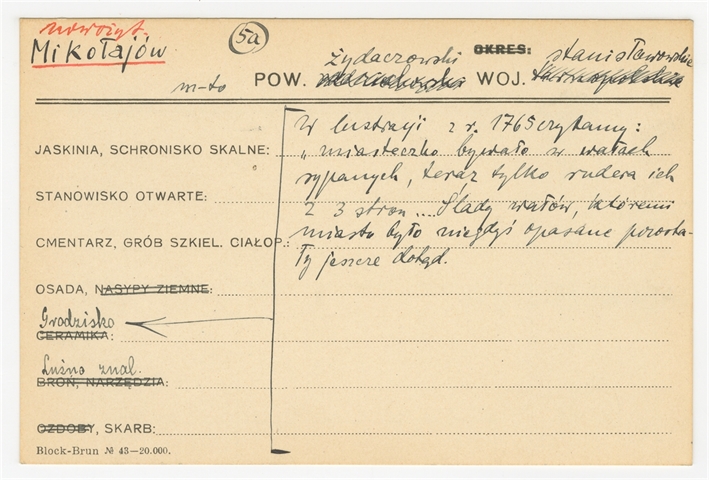 nowożyt.
Mikołajów
5a
OKRES:
m-to
POW. żydaczowski WOJ. stanisławowskie
JASKINIA, SCHRONISKO SKALNE:
STANOWISKO OTWARTE:
CMENTARZ, GRÓB SZKIEL. CIAŁOP.:
OSADA, NASYPY ZIEMNE:
Grodzisko
CERAMIKA:
Luźno znal.
BROŃ, NARZĘDZIA:
OZDOBY, SKARB:
Block-Brun № 43—20.000.
W lustracji z r. 1765 czytamy:
„miasteczko bywało w wałach
sypanych, teraz tylko rudera ich
z 3 stron.... Ślady wałów, któremi
miasto było niegdyś opasane pozosta-
ły jeszcze dotąd.